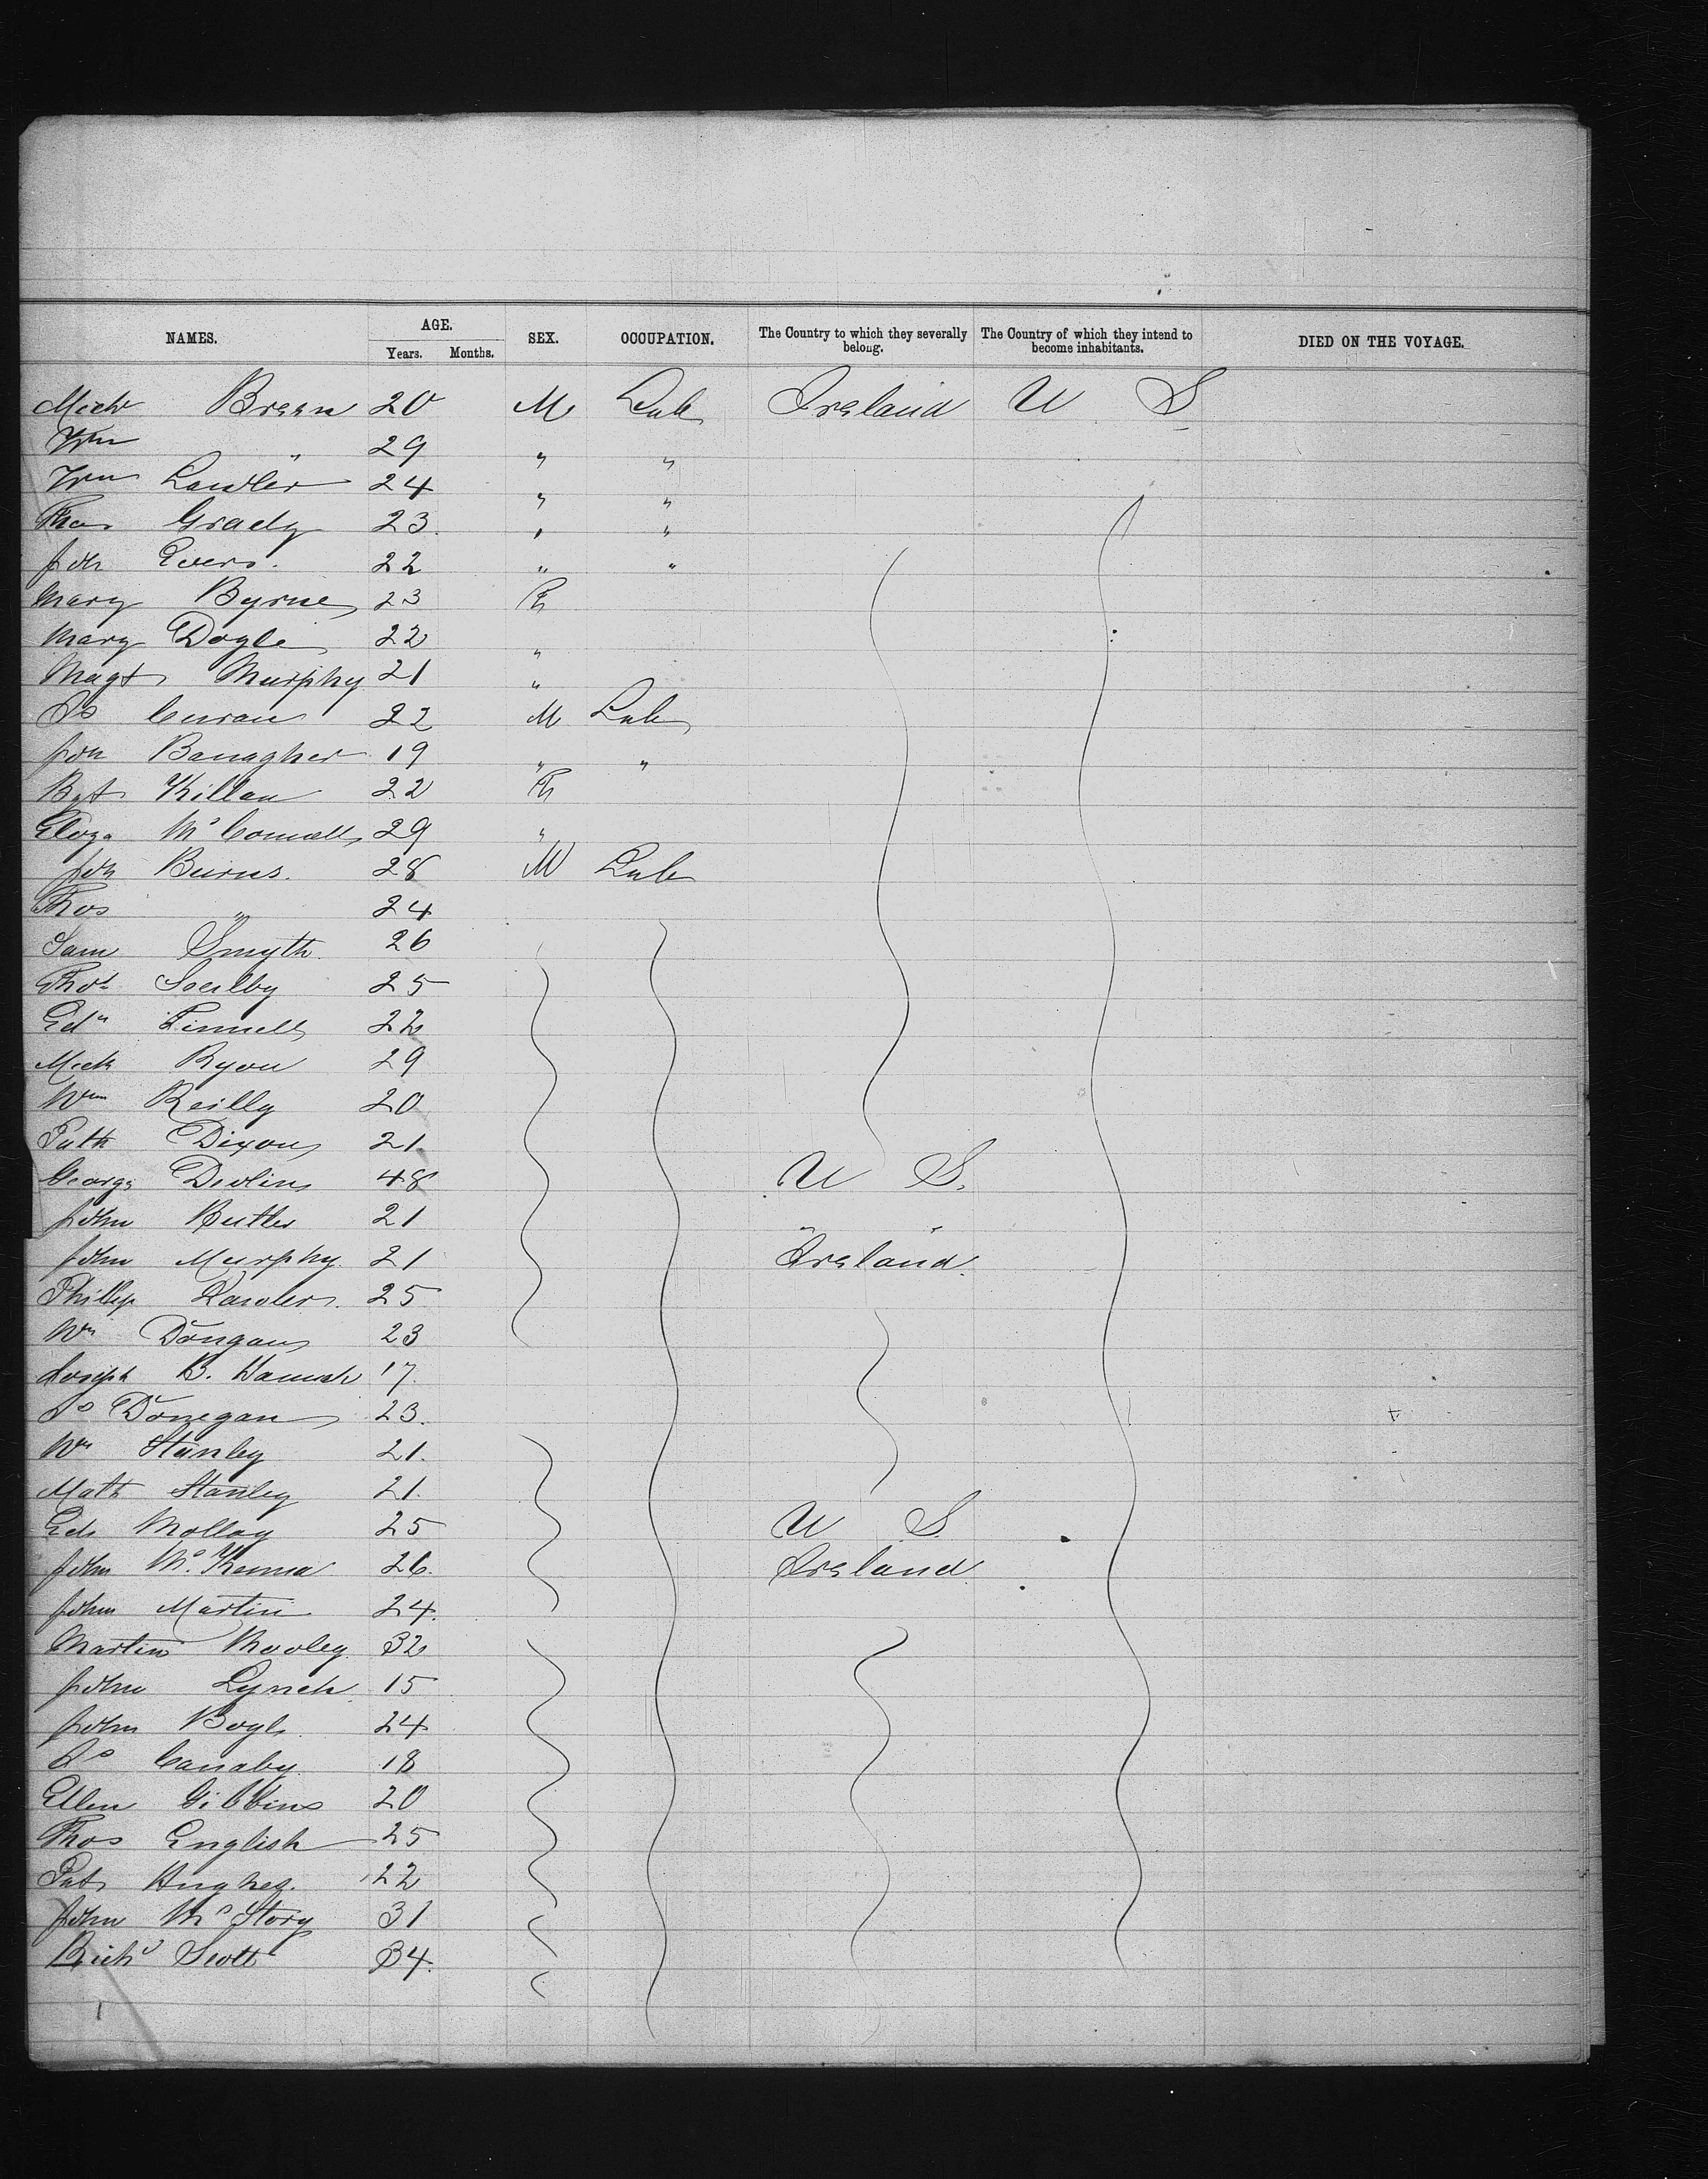 NAMES. AGE. Years. Months. SEX. OCCUPATION. The Country to which they severally belong. The Country of which they intend to become inhabitants. DIED ON THE VOYAGE.
Mich Breen 20 M Lab Ireland U S
Wm " 29 " "
Wm Lawler 24 " "
Thos Grady 23. " "
Joh Evers. 22 " "
Mary Byrne 23 F
Mary Doyle 22 "
Magt Murphy 21 "
Jo Curran 22 M Lab
Joh Banagher 19 " "
Bgt Killan 22 F
Eliza McConnell 29 "
Joh Burns. 28 M Lab
Thos " 24
Sam Smyth. 26
Thos 25
Edw Finnell 22
Mich Ryon 29
Wm Reilly 20
Patk Dixon 21.
George Devlin 48 U S.
John Butler 21 " "
John Murphy. 21 Ireland.
Phillip Lawler. 25
Wm Dongan 23
Joseph B. 17.
Jo Donegan 23.
Wm Stanley 21.
Math Stanley 21.
Ed Molloy 25 U S.
John McKenna 26. Ireland.
John Martin 24.
Martin Rooley. 32
John Lynch. 15
John Boyle 24
Jo Canaby. 18
Ellen Gibbins 20
Thos English 25
Pat Hughes. 22
John McStory 31
Richd Scott 34.